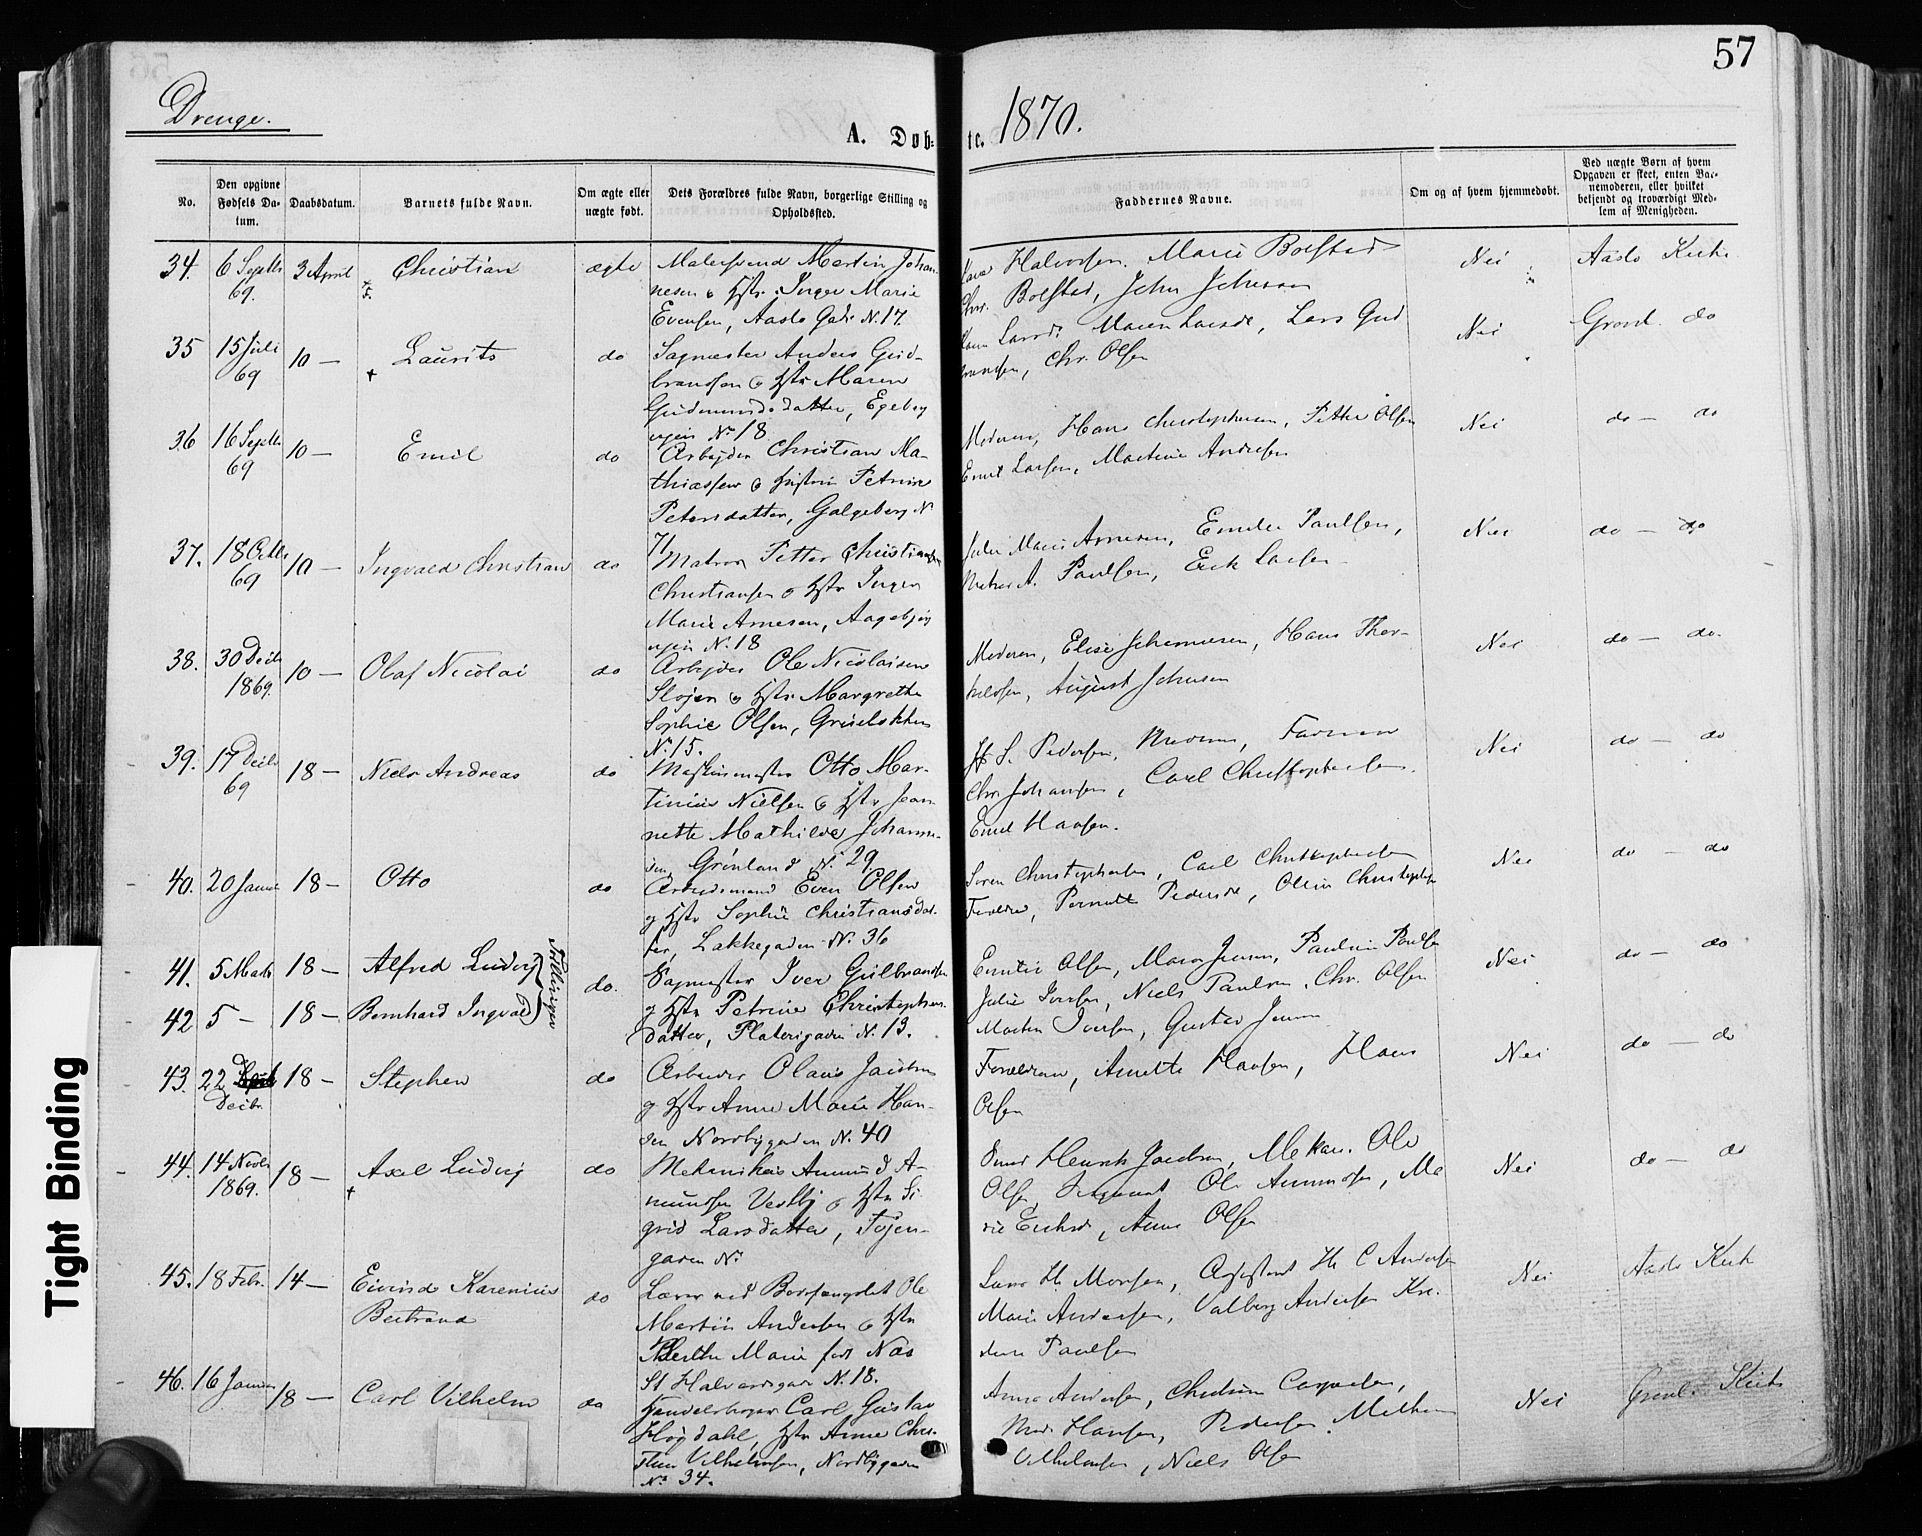 57
Drenge.
A. Døb-
te. 1870.
No.
Den opgivne Fødsels Da-tum.
Daabsdatum.
Barnets fulde Navn.
Om ægte eller uægte født.
Dets Forældres fulde Navn, borgerlige Stilling og Opholdssted.
Faddernes Navne.
Om og af hvem hjemmedøbt.
Ved uægte Børn af hvem Opgaven er skeet, enten Bar-nemoderen, eller hvilket betjendt og troværdigt Med-lem af Menigheden.
34. 6 Septbr 69. 3 April Christian ægte Malersvend Martin Johan-
nesen o Hstr. Inger Marie
Evensen, Aaslo Gade N. 17.
Halvorsen. Marie Bolstad
Chr. Bolstad, John Johnsen
Nei Aaslo Kirke
35 15 Juli 69 10 — Laurits do Sagmester Anders Gud-
brandsen o Hstr Maren
Gudmundsdatter, Egeberg
veien No 18
Maren Larsdr, Lars Gud
brandsen, Chr. Olsen
Nei Grønl. do
36 16 Septbr 69 10 — Emil do Arbejder Christian Ma-
thiassen o Hustru Petrine
Petersdatter, Galgeberg N
71
Moderen, Hans Christophersen, Petter Olsen
Emil Larsen, Martinie Andresen
Nei do — do
37. 18 Octbr 69 10 — Ingvald Christian do Matros Petter Christian
Christiansen o Hstr Inger
Marie Arnesen, Aagebjerg
veien N. 18
Julie Marie Arnesen, Emilie Paulsen,
Matros A. Paulsen, Erik Larsen
Nei do — do
38. 30 Decbr 1869. 10 — Olaf Nicolai do Arbejder Ole Nicolaisen
Slojen o Hstr Margrethe
Sophie Olsen, Grüneløkken
No 15.
Moderen, Elise Johannesen, Hans Thor-
valdsen, August Johnsen
Nei do — do.
39. 17 Decbr 69 18 — Niels Andreas do Maskinmester Otto Mar-
tinius Nielsen o Hstr Jean
nette Mathilde Johanne-
sen, Grønland No 29
S. Pedersen, Moderen, Faderen
Chr Johansen, Carl Christophersen.
Emil Hansen.
Nei do — do
40. 20 Januar 18 — Otto do Arbeidsmand Even Olsen
og Hstr Sophie Christiansdat-
ter, Lakkegaden No. 36
Søren Christophersen, Carl Christophersen
Forældre, Pernille Pedersdr, Oline Christophersen
Nei do — do
41. 5 Marts 18 — Alfred Ludvig
42 5 — 18 — Bernhard Ingvald
Tvillinger
do. Sagmester Iver Gulbrandsen
og Hstr Petrine Christophers-
datter, Platousgaden N. 13.
Emilie Olsen, Maren Jensen, Pauline Paulsen
Julie Iversen, Niels Paulsen, Chr. Olsen
Martin Iversen, Gustav Jensen
Nei do — do
43. 22 Decbr. 18 — Stephen do Arbeider Olaus Jacobsen
og Hstr Anne Marie Han-
sen Nordbygaden N. 40
Forældrene, Annette Hansen, Hans
Olsen
Nei do — do
44. 14 Novbr 1869. 18 — Axel Ludvig do Mekanikus Amund A-
mundsen Vestby o Hstr Si
grid Larsdatter, Tøjen-
gaden No
Smed Henrik Jacobsen, Mekan. Ole
Olsen Sergeant Ole Amundsen, Ma
rie Eriksd, Anne Olsen
Nei do — do
45. 18 Febr. 14 — Eivind Karenius
Bertrand
do Lærer ved Bodsfængslet Ole
Martin Andersen o Hstr
Berthe Marie født Næs
St Halvardsgade N. 18.
Lars H. Monsen, Assistent H. C Andersen
Marie Andersen, Valborg Andersen Kre.
Paulsen
Nei Aaslo Kirke
46. 16 Januar 18 — Carl Vilhelm do Handelsborger Carl Gustav
Høydahl, Hstr Anne Chri-
stine Vilhelmsen, Nordbygaden
No 34.
Anna Andersen, Christine Caspersen,
Hansen, Pedersen, Mathea
Vilhelmsen, Niels Olsen
Nei Grønl. Kirke
Tight Binding